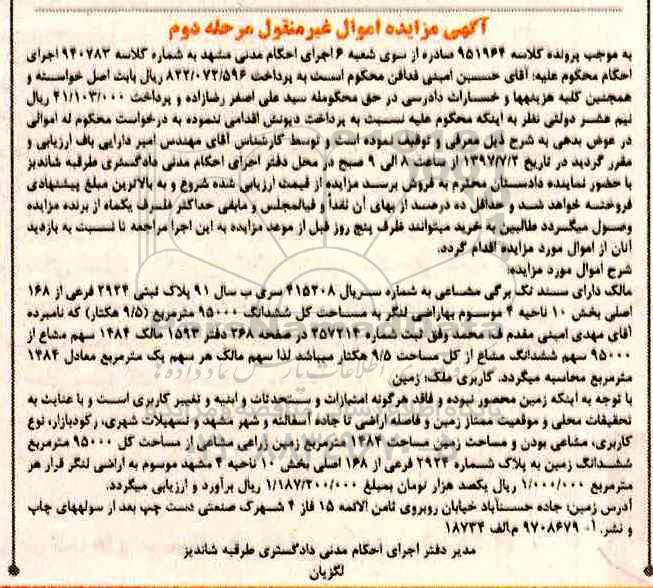 آگهی مزایده اموال غیرمنقول مرحله دوم
به موجب پرونده کلاسه ۹۵۱۹۶۴ صادره از سوی شعبه ۶ اجرای احکام مدنی مشهد به شماره کلاسه ۹۴۰۷۸۳ اجرای
احکام محکوم علیه: آقای حسین امینی فدافن محکوم است به پرداخت ۸۲۲/۰۷۲/۵۹۶ ریال بابت اصل خواسته و
همچنین کلیه هزینهها و خسارات دادرسی در حق محکومله سید علی اصغر رضازاده و پرداخت ۴۱/۱۰۳/۰۰۰ ریال
نیم عشر دولتی نظر به اینکه محکوم علیه نسبت به پرداخت دیونش اقدامی ننموده به درخواست محکوم له اموالی
در عوض بدهی به شرح ذیل معرفی و توقیف نموده است و توسط کارشناس آقای مهندس امیر دارایی باف ارزیابی و
مقرر گردید در تاریخ ۱۳۹۷/۷/۲ از ساعت ۸ الی ۹ صبح در محل دفتر اجرای احکام مدنی دادگستری طرقبه شاندیز
با حضور نماینده دادستان محترم به فروش برسد مزایده از قیمت ارزیابی شده شروع و به بالاترین مبلغ پیشنهادی
فروخته خواهد شد و حداقل ده درصد از بهای آن نقداً و فیالمجلس و مابقی حداکثر ظرف یکماه از برنده مزایده
وصول میگردد طالبین به خرید میتوانند ظرف پنج روز قبل از موعد مزایده به این اجرا مراجعه تا نسبت به بازدید
آنان از اموال مورد مزایده اقدام گردد.
شرح اموال مورد مزایده:
مالک دارای سند تک برگی مشاعی به شماره سریال ۴۱۵۲۰۸ سری ب سال ۹۱ پلاک ثبتی ۲۹۲۴ فرعی از ۱۶۸
اصلی بخش ۱۰ ناحیه ۴ موسوم بهاراضی لنگر به مساحت کل ششدانگ ۹۵۰۰۰ مترمربع (۹/۵ هکتار) که نامبرده
آقای مهدی امینی مقدم ف محمد وفق ثبت شماره ۲۵۷۲۱۴ در صفحه ۲۶۸ دفتر ۱۵۹۳ مالک ۱۴۸۴ سهم مشاع از
۹۵۰۰۰ سهم ششدانگ مشاع از کل مساحت ۹/۵ هکتار میباشد لذا سهم مالک هر سهم یک مترمربع معادل ۱۴۸۴
مترمربع محاسبه میگردد. کاربری ملک: زمین
با توجه به اینکه زمین محصور نبوده و فاقد هرگونه امتیازات و مستحدثات و ابنیه و تغییر کاربری است و با عنایت به
تحقیقات محلی و موقعیت ممتاز زمین و فاصله اراضی تا جاده آسفالته و شهر مشهد و تسهیلات شهری، رکودبازار، نوع
کاربری، مشاعی بودن و مساحت زمین مساحت ۱۴۸۴ مترمربع زمین زراعی مشاعی از مساحت کل ۹۵۰۰۰ مترمربع
ششدانگ زمین به پلاک شماره ۲۹۲۴ فرعی از ۱۶۸ اصلی بخش ۱۰ ناحیه ۴ مشهد موسوم به اراضی لنگر قرار هر
مترمربع ۱/۰۰۰/۰۰۰ ریال یکصد هزار تومان بمبلغ ۱/۱۸۷/۲۰۰/۰۰۰ ریال برآورد و ارزیابی میگردد.
آدرس زمین: جاده حسنآباد خیابان روبروی ثامن الائمه ۱۵ فاز ۴ شهرک صنعتی دست چپ بعد از سولههای چاپ
و نشر. آ- ۹۷۰۸۶۷۹ م.الف ۱۸۷۳۴
مدیر دفتر اجرای احکام مدنی دادگستری طرقبه شاندیز
لگزیان